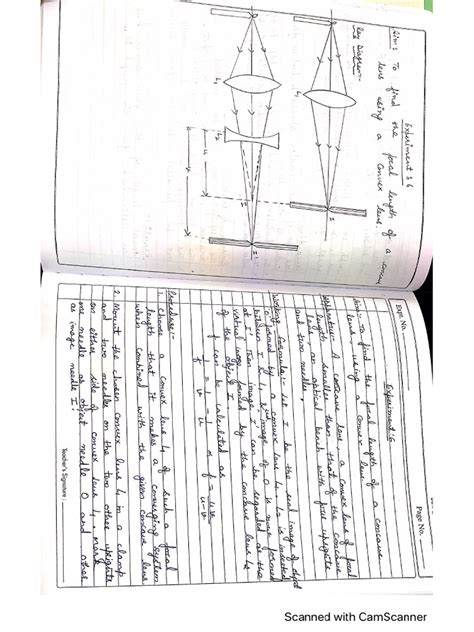 Experiment : 6
Aim : To find the focal length of a concave
lens using a convex lens.
Ray Diagram:-
O
L1
I
O
L1
L2
I
I'
u
v
Expt. No.
Page No.
Experiment : 6
Aim :- To find the focal length of a concave
lens using a convex lens.
Apparatus : A concave lens, a convex lens of focal
length smaller than that of the concave
lens, an optical bench with four uprights
and two needles.
Working formula:- Let I be the real image of object
O formed by a convex lens L1.
virtual image formed by the concave lens L2
of the object I.
f can be calculated as
Procedure:-
1. Choose a convex lens L1 of such a focal
length that it makes a converging system
when combined with the given concave lens
2. Mount the chosen convex lens L1 in a clamp
and two needles on the two other uprights
on either side of convex lens L1. Mark
one needle as object needle O and other
as image needle I.
Teacher's Signature :
Scanned with CamScanner